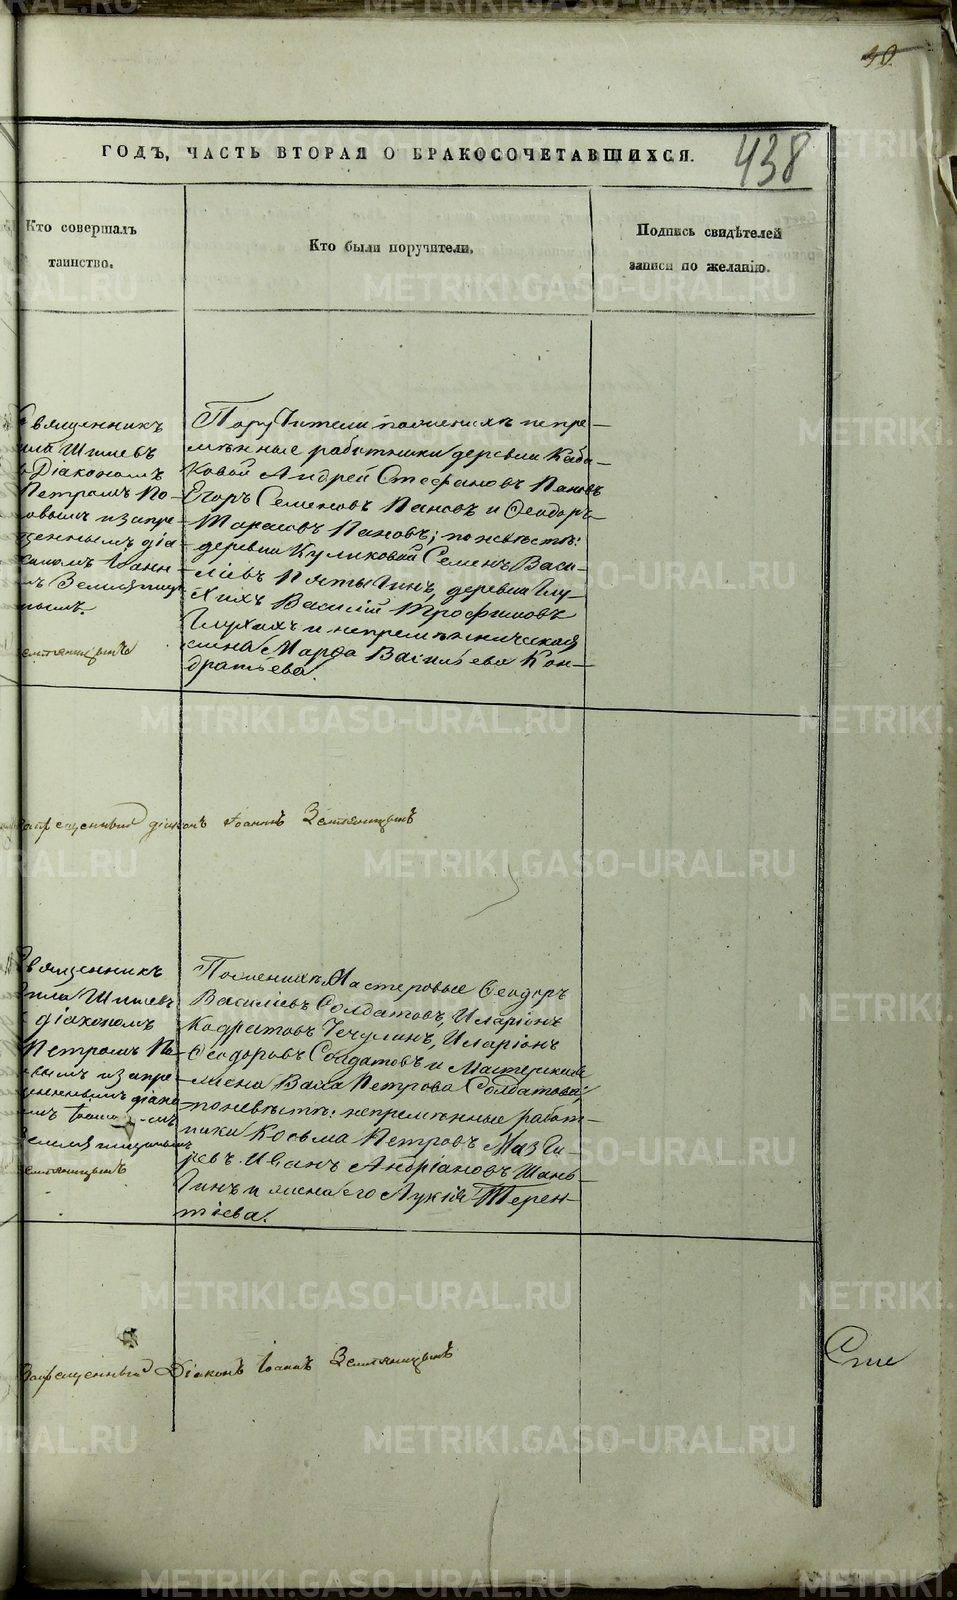 40.
ГОДЪ, ЧАСТЬ ВТОРАЯ О БРАКОСОЧЕТАВШИХСЯ.
438
Кто совершалъ
таинство.
Кто были поручители.
Подпись свидѣтелей
записи по желанію.
Священникъ
Шишевъ
Діакономъ
Петромъ По-
повымъ и запре-
щеннымъ діа-
кономъ Іоанн-
Поручители по женихѣ непре-
мѣнные работники деревни Каба-
ковой Андрей Стефановъ Пановъ
Егоръ Семеновъ Пановъ и Ѳеодоръ
Тарасовъ Пановъ; по невѣстѣ:
деревни Куликовой Семенъ Васи-
ліевъ Пятыгинъ, деревни Глу-
хихъ Василій Трофимовъ
Глухихъ и непремѣнническая
жена Марфа Васильева Кон-
дратьева.
Запрещенный діаконъ Іоаннъ Земляницынъ
Священникъ
Шишевъ
діакономъ
Петромъ По-
повымъ и запре-
щеннымъ діако
По женихѣ Мастеровые Ѳеодоръ
Василіевъ Солдатовъ, Иларіонъ
Кодратовъ Чечулинъ, Иларіонъ
Ѳеодоровъ Солдатовъ и Мастерская
жена Васса Петрова Солдатова;
по невѣстѣ: непремѣнные работ-
ники Косьма Петровъ
Иванъ Андріановъ Шань-
гинъ и жена его Лукія Терен-
тіева.
Запрещенный Діаконъ Іоаннъ Земляницынъ
METRIKI.GASO-URAL.RU